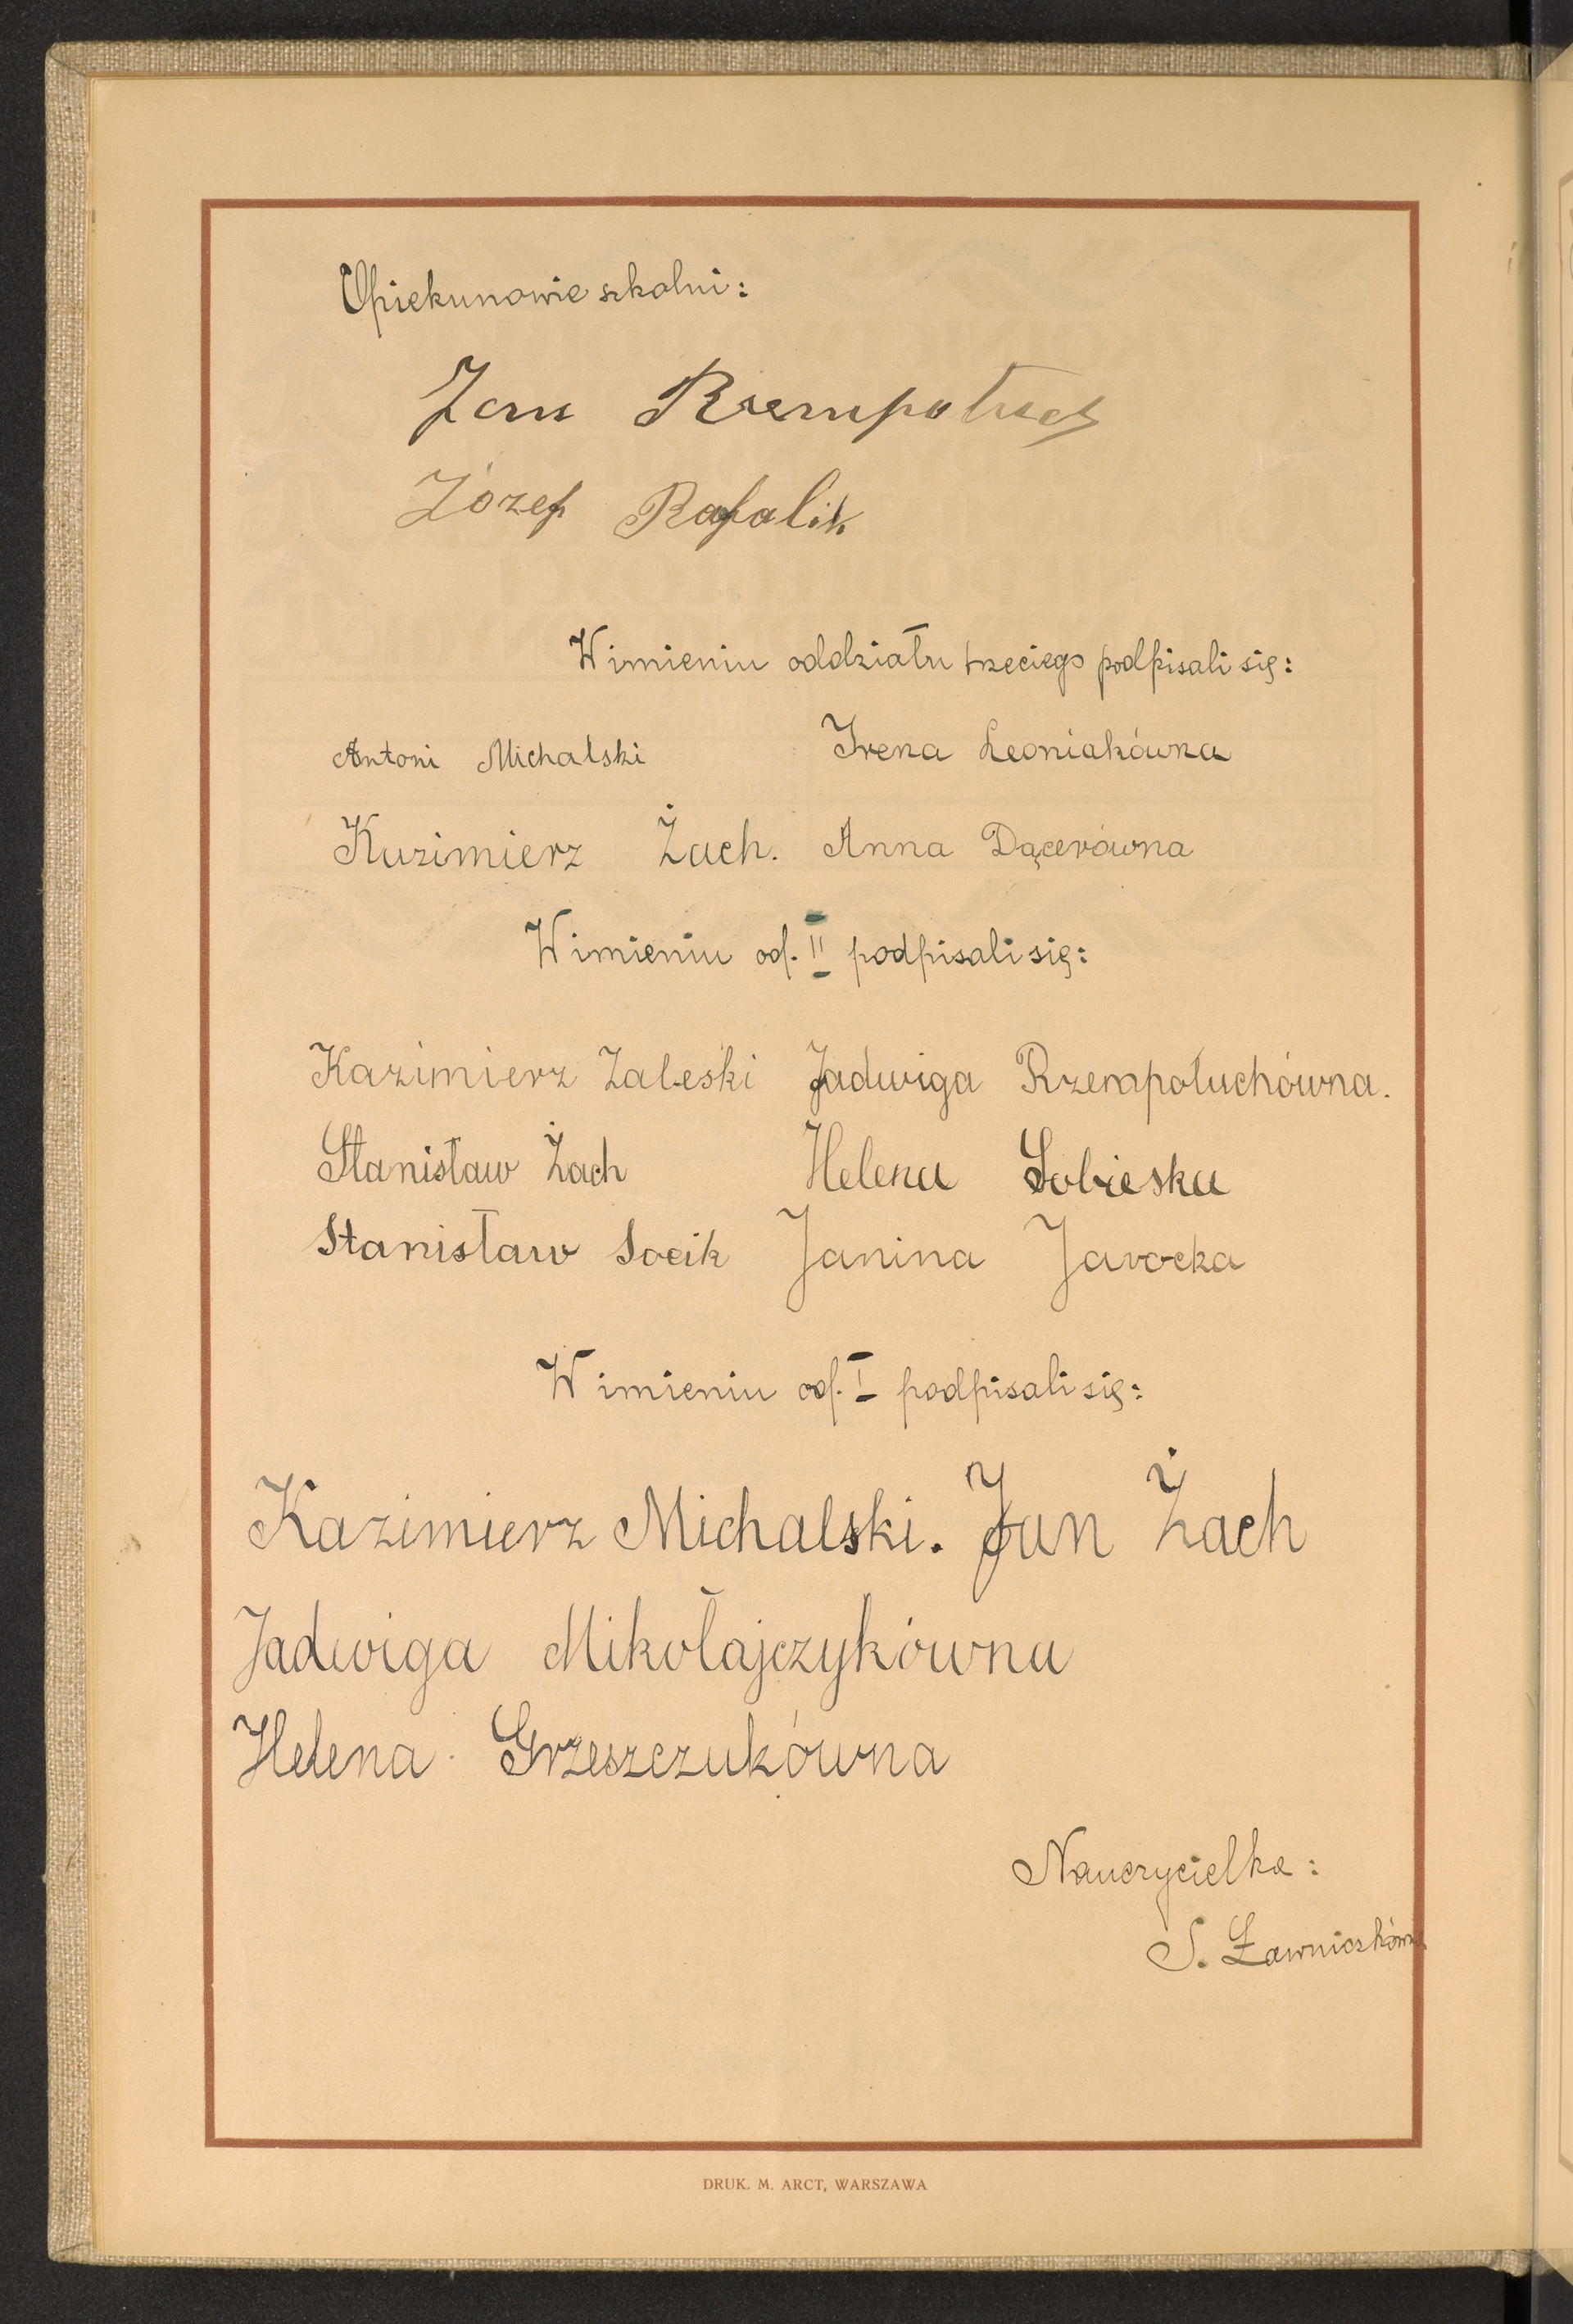 Opiekunowie szkolni:
Jan Rzempołuch
Józef Rafalik
W imieniu oddziału trzeciego podpisali się:
Antoni Michalski Irena Leoniakówna
Kazimierz Żach. Anna Dącerówna
W imieniu od. II podpisali się:
Kazimierz Zaleski Jadwiga Rzempołuchówna.
Stanisław Żach Helena Sobieska
Stanisław Socik Janina Jarocka
W imieniu od. I podpisali się:
Kazimierz Michalski. Jan Żach
Jadwiga Mikołajczykówna
Helena Grzeszczukówna
Nauczycielka:
S. Ławniczkówna
DRUK. M. ARCT, WARSZAWA